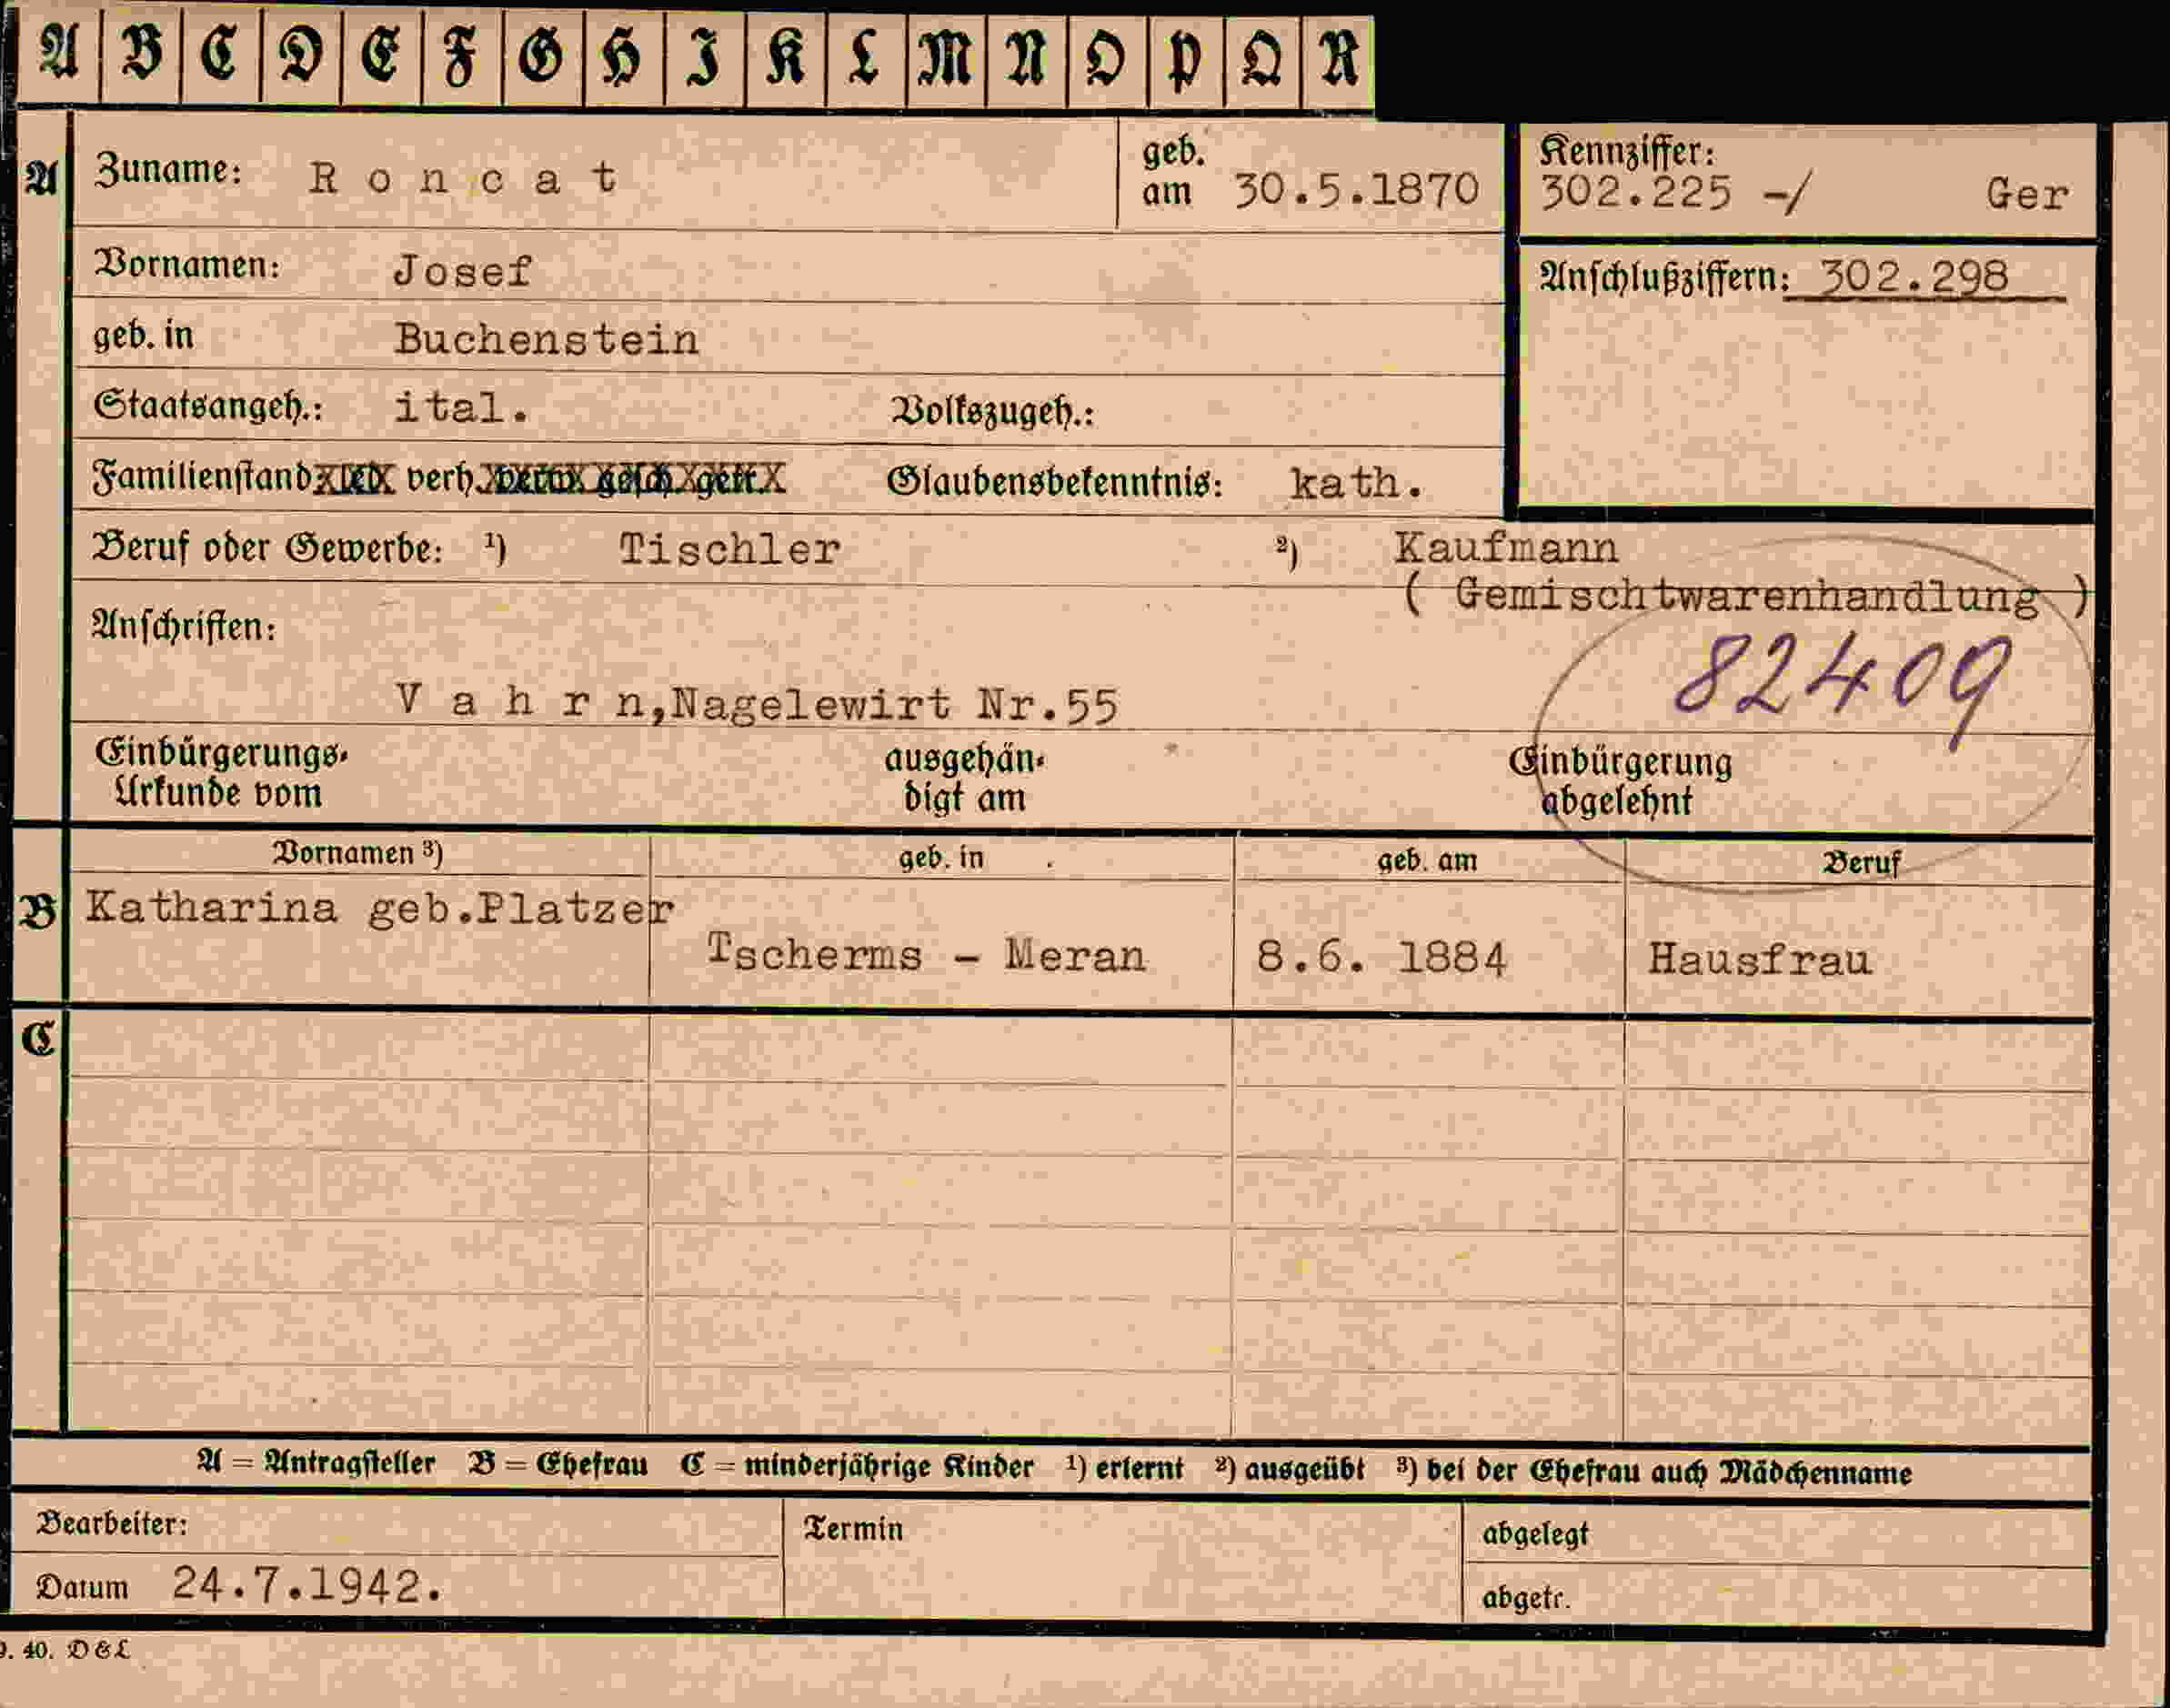 A B C D E F G H I K L M N O P Q R
A Zuname: Roncat geb. am 30.5.1870
Kennziffer: 302.225 -/ Ger
Vornamen: Josef
Anschlußziffern: 302.298
geb. in Buchenstein
Staatsangeh.: ital. Volkszugeh.:
Familienstand verh. Glaubensbekenntnis: kath.
Beruf oder Gewerbe: ¹) Tischler ²) Kaufmann
( Gemischtwarenhandlung )
Anschriften:
82409
Vahrn,Nagelewirt Nr.55
Einbürgerungs-Urkunde vom ausgehändigt am Einbürgerung abgelehnt
Vornamen ³) geb. in geb. am Beruf
B Katharina geb.Platzer
Tscherms - Meran 8.6. 1884 Hausfrau
C
A = Antragsteller B = Ehefrau C = minderjährige Kinder ¹) erlernt ²) ausgeübt ³) bei der Ehefrau auch Mädchenname
Bearbeiter: Termin abgelegt
Datum 24.7.1942. abgetr.
40. D & L